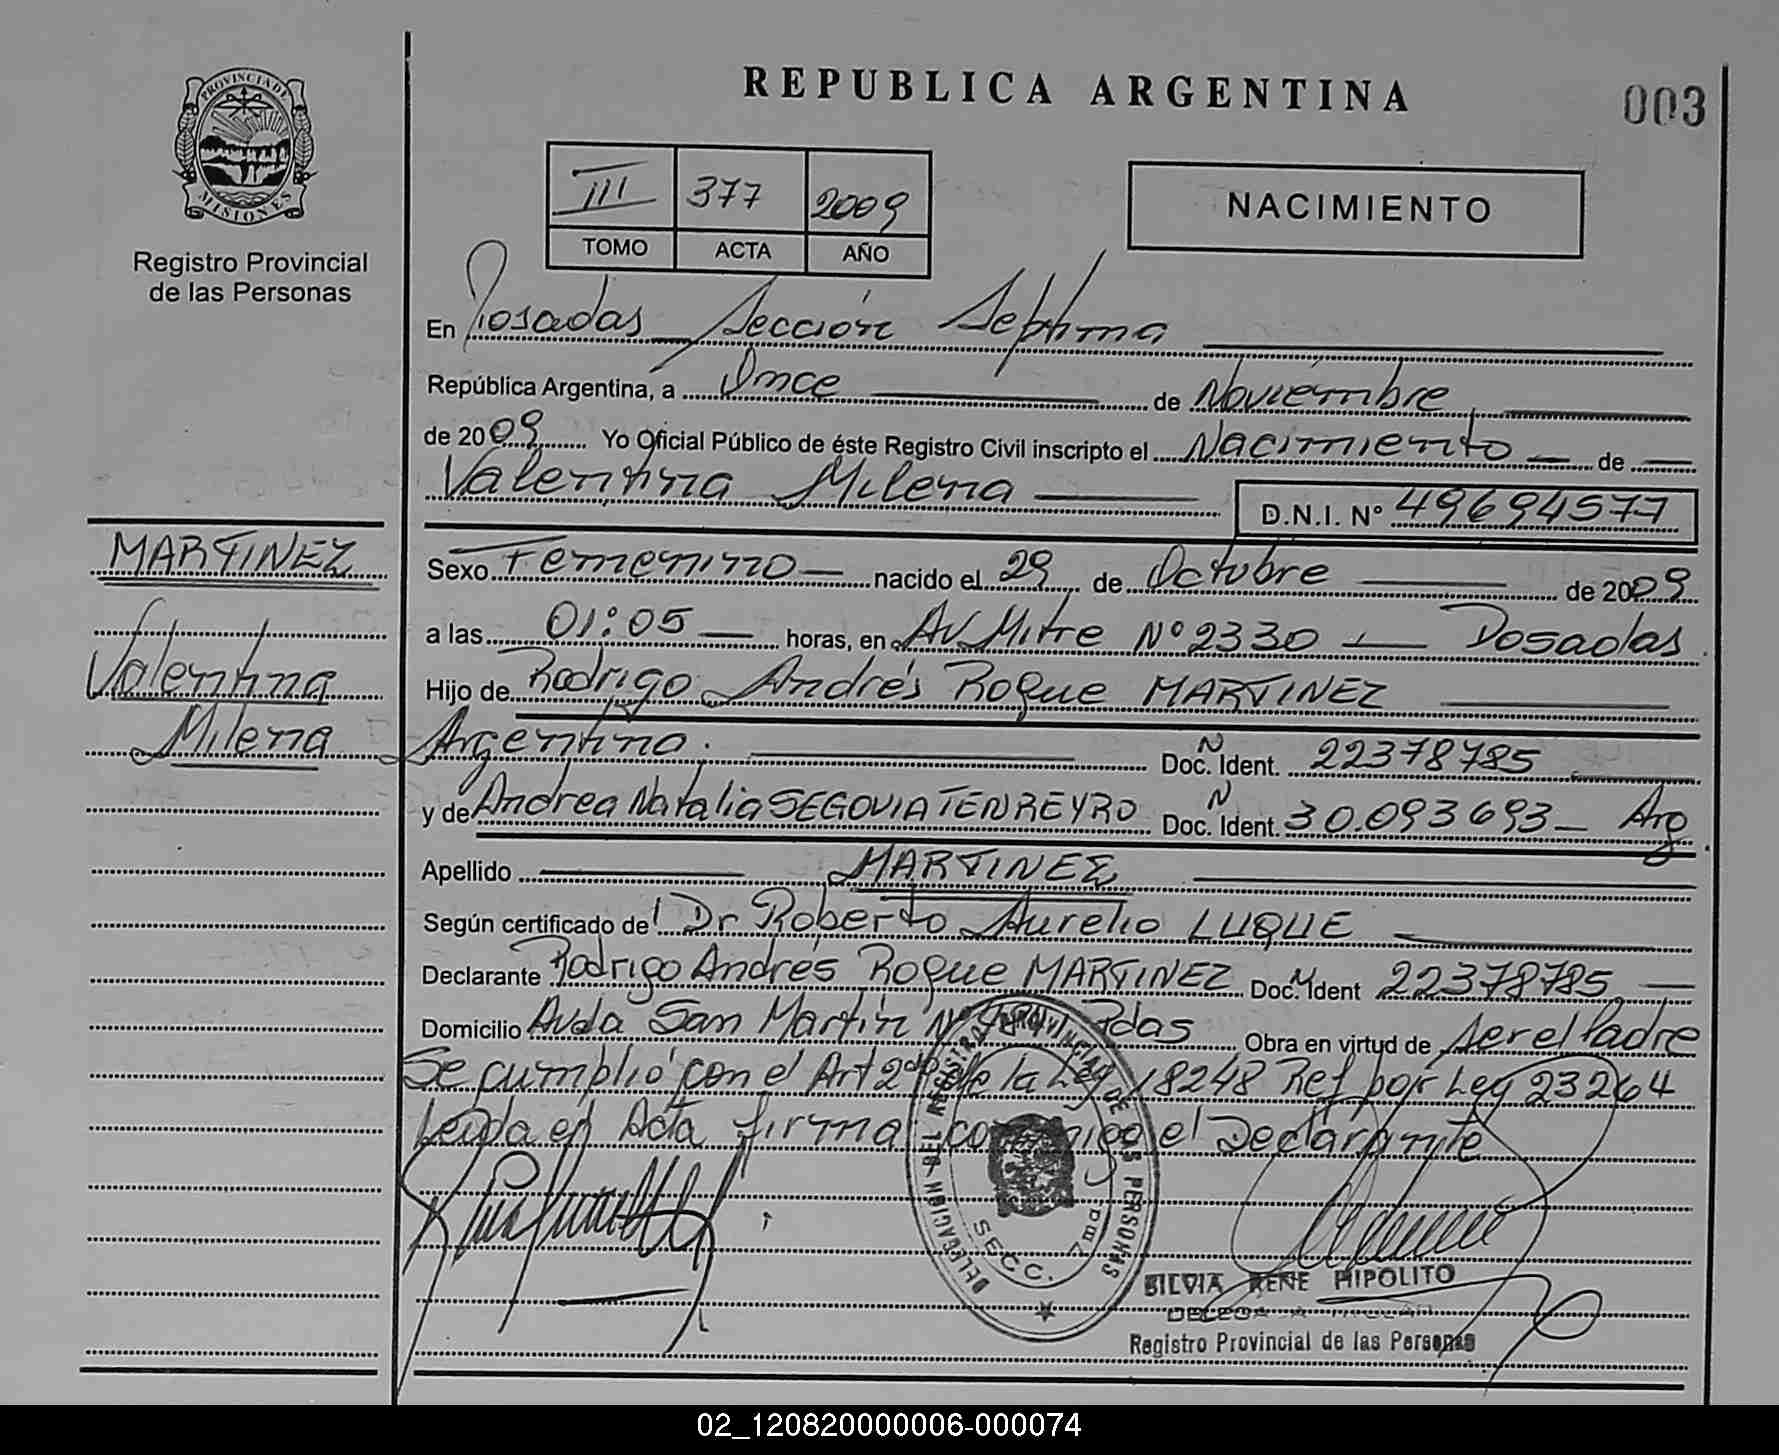 PROVINCIA DE
MISIONES
Registro Provincial
de las Personas
REPUBLICA ARGENTINA
003
III 377 2009
TOMO ACTA AÑO
NACIMIENTO
En Posadas Sección Septima
República Argentina, a Once de Noviembre
de 2009 Yo Oficial Público de éste Registro Civil inscripto el Nacimiento de
Valentina Milena D.N.I. N° 49694577
MARTINEZ
Valentina
Milena
Sexo Femenino nacido el 29 de Octubre de 2009
a las 01:05 horas, en Av Mitre N° 2330 Posadas
Hijo de Rodrigo Andrés Roque MARTINEZ
Argentino. Doc. N Ident. 22378785
y de Andrea Natalia SEGOVIA TENREYRO Doc. N Ident. 30.093693 Arg
Apellido MARTINEZ
Según certificado del Dr Roberto Aurelio LUQUE
Declarante Rodrigo Andrés Roque MARTINEZ Doc. N Ident 22378785
Domicilio Avda San Martín N° Pdas Obra en virtud de ser el Padre
Se cumplió con el Art 2do de la Ley 18248 Ref por Ley 23264
Leida el Acta firma conmigo el Declarante
DELEGACION DEL REGISTRO PROVINCIAL DE LAS PERSONAS
SECC. 7ma
SILVIA RENE HIPOLITO
Registro Provincial de las Personas
02_120820000006-000074